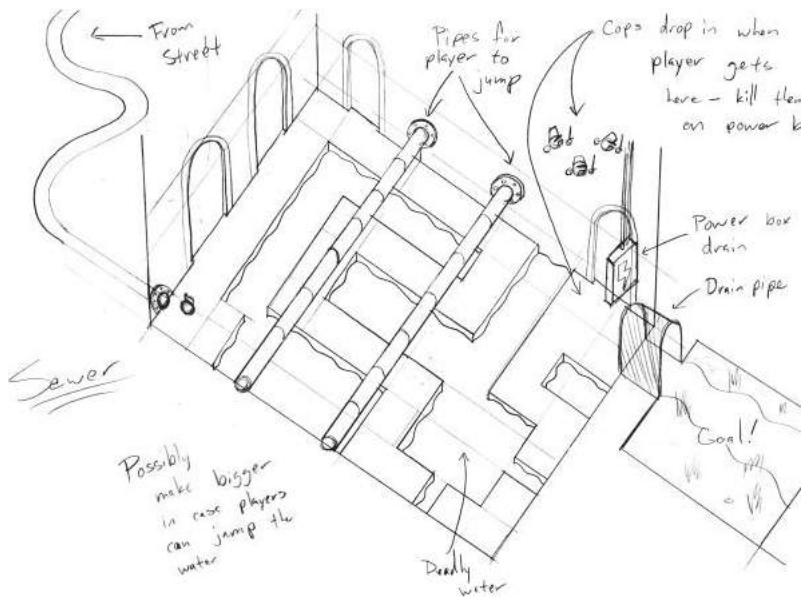 From
Street
Pipes for
player to
jump
Cops drop in when
player gets
here - kill them
on power b
Power box
drain
Drain pipe
Sewer
Goal!
Possibly
make bigger
in case players
can jump the
water
Deadly
water